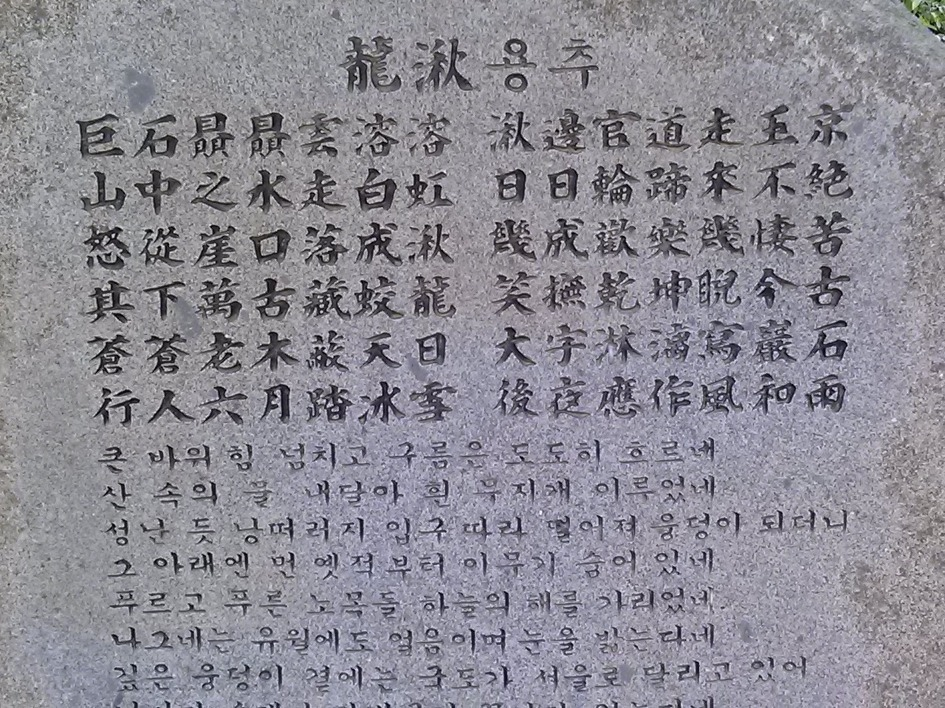 龍湫 용추
巨石贔贔雲溶溶 湫邊官道走玉京
山中之水走白虹 日日輪蹄來不絶
怒從崖口落成湫 幾成歡樂幾悽苦
其下萬古藏蛟龍 笑撫乾坤睨今古
蒼蒼老木蔽天日 大字淋漓寫巖石
行人六月踏冰雪 後夜應作風和雨
큰 바위 힘 넘치고 구름은 도도히 흐르네
산 속의 물 내달아 흰 무지개 이루었네
성난 듯 낭떠러지 입구 따라 떨어져 웅덩이 되더니
그 아래엔 먼 옛적부터 이무기 숨어 있네
푸르고 푸른 노목들 하늘의 해를 가리었네
나그네는 유월에도 얼음이며 눈을 밟는다네
깊은 웅덩이 곁에는 국도가 서울로 달리고 있어